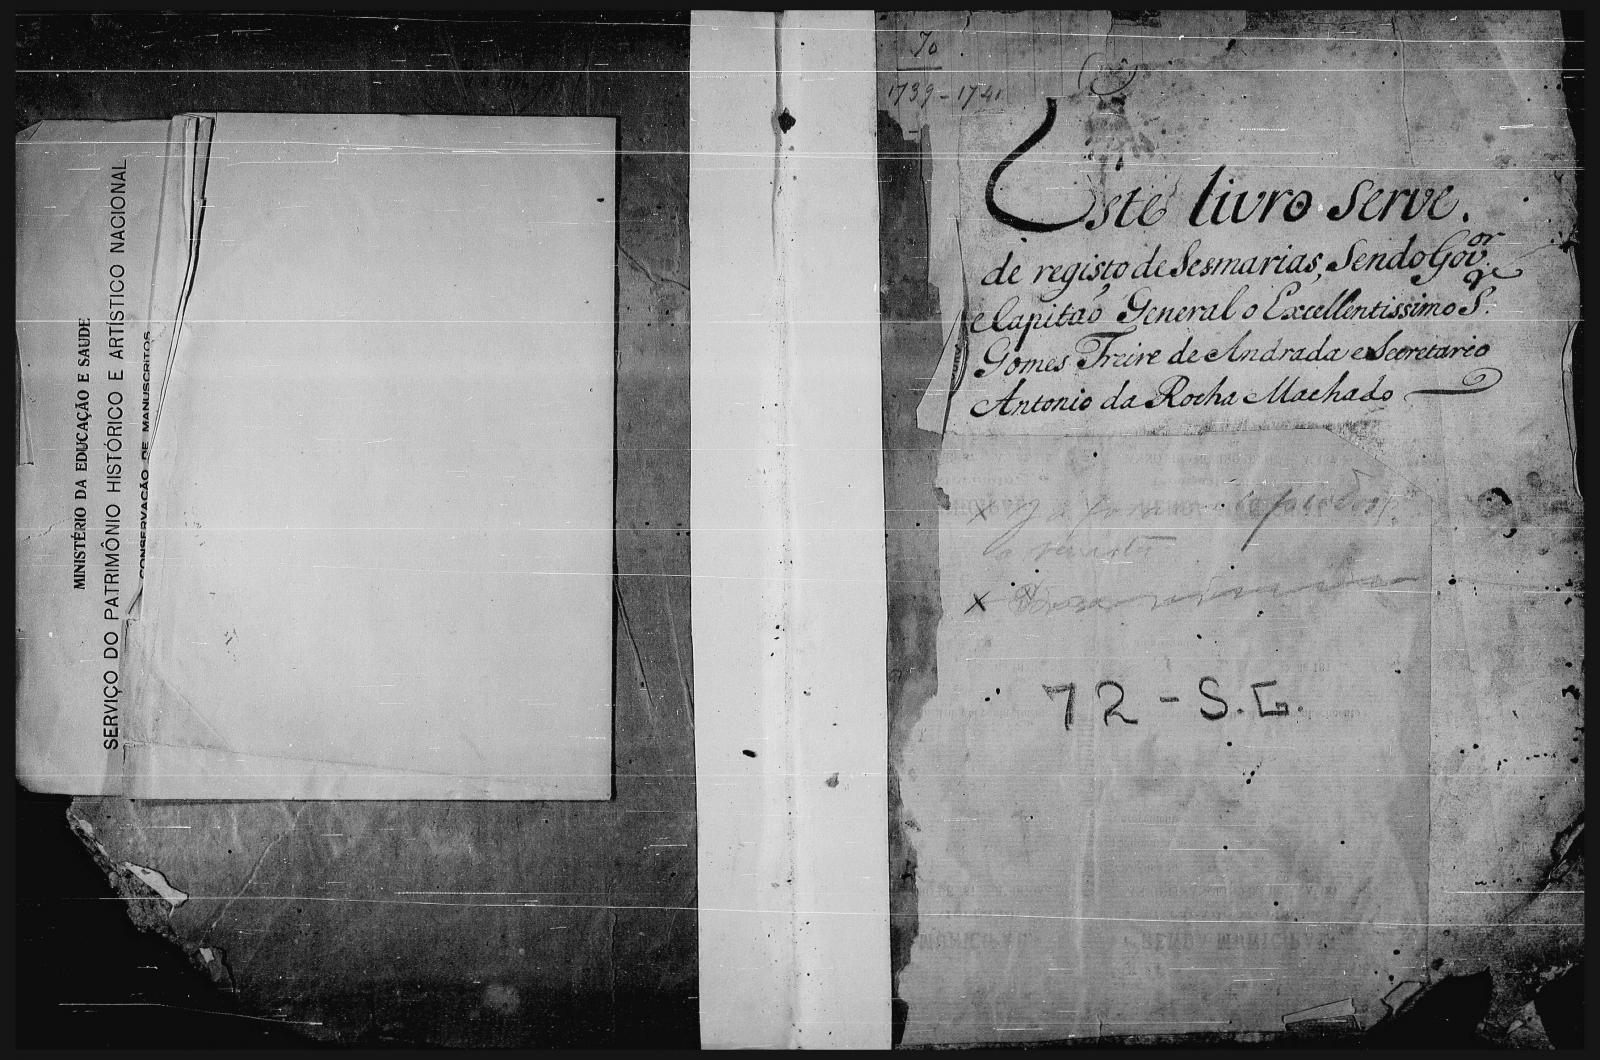 MINISTÉRIO DA EDUCAÇÃO E SAUDE
SERVIÇO DO PATRIMÔNIO HISTÓRICO E ARTÍSTICO NACIONAL
CONSERVAÇÃO DE MANUSCRITOS
70
1739-1741
Este livro serve.
de registo de Sesmarias, Sendo Gov.or
e Capitaõ General o Excellentissimo S.
Gomes Freire de Andrada e Secretario
Antonio da Rocha Machado
72-S.G.